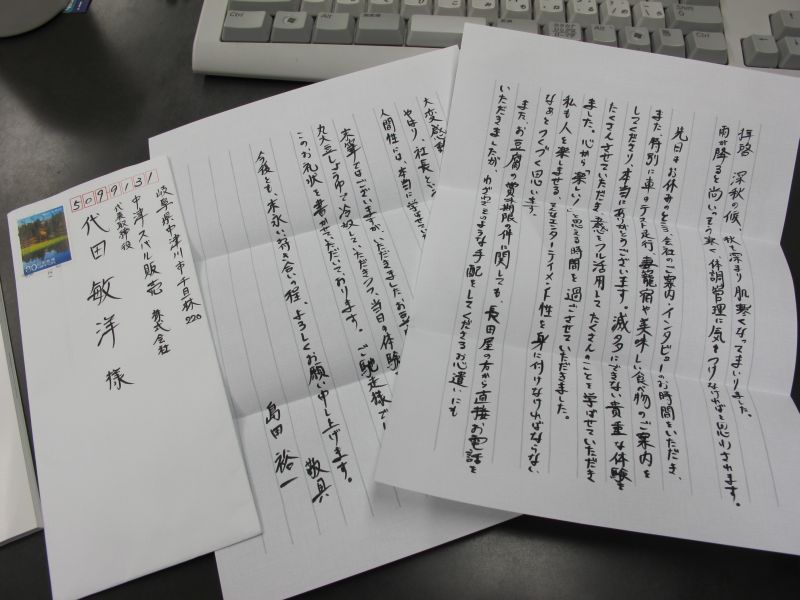 拝啓 深秋の候、秋も深まり肌寒くなってまいりました。
雨が降ると尚いっそう寒く体調管理に気をつけなければと思わされます。
先日はお休みのところ、会社のご案内・インタビューのお時間をいただき、
また、特別に車のテスト走行、妻籠宿や美味しい食べ物のご案内を
してくださり、本当にありがとうございます。滅多にできない貴重な体験を
たくさんさせていただき、五感をフル活用してたくさんのことを学ばせていただき
ました。心から「楽しい」と思える時間を過ごさせていただきました。
私も人を楽しませる、そんなエンターテイメント性を身に付けなければならない
なぁとつくづく思います。
また、お豆腐の賞味期限の件に関しても、長田屋の方から直接お電話を
いただきましたが、わざわざそのような手配をしてくださるお心遣いにも
大変感動
やはり、社長という
人間性には、本当に学ばせて
末筆ではございますが、いただきましたお豆
で冷奴でいただきつつ、当日の体験
このお礼状を書かせていただいております。ご馳走様でし
今後とも、末永いお付き合いの程、よろしくお願い申し上げます。
敬具
島田裕一
5099131
岐阜県中津川市千旦林220
中津スバル販売 株式会社
代表取締役
代田敏洋様